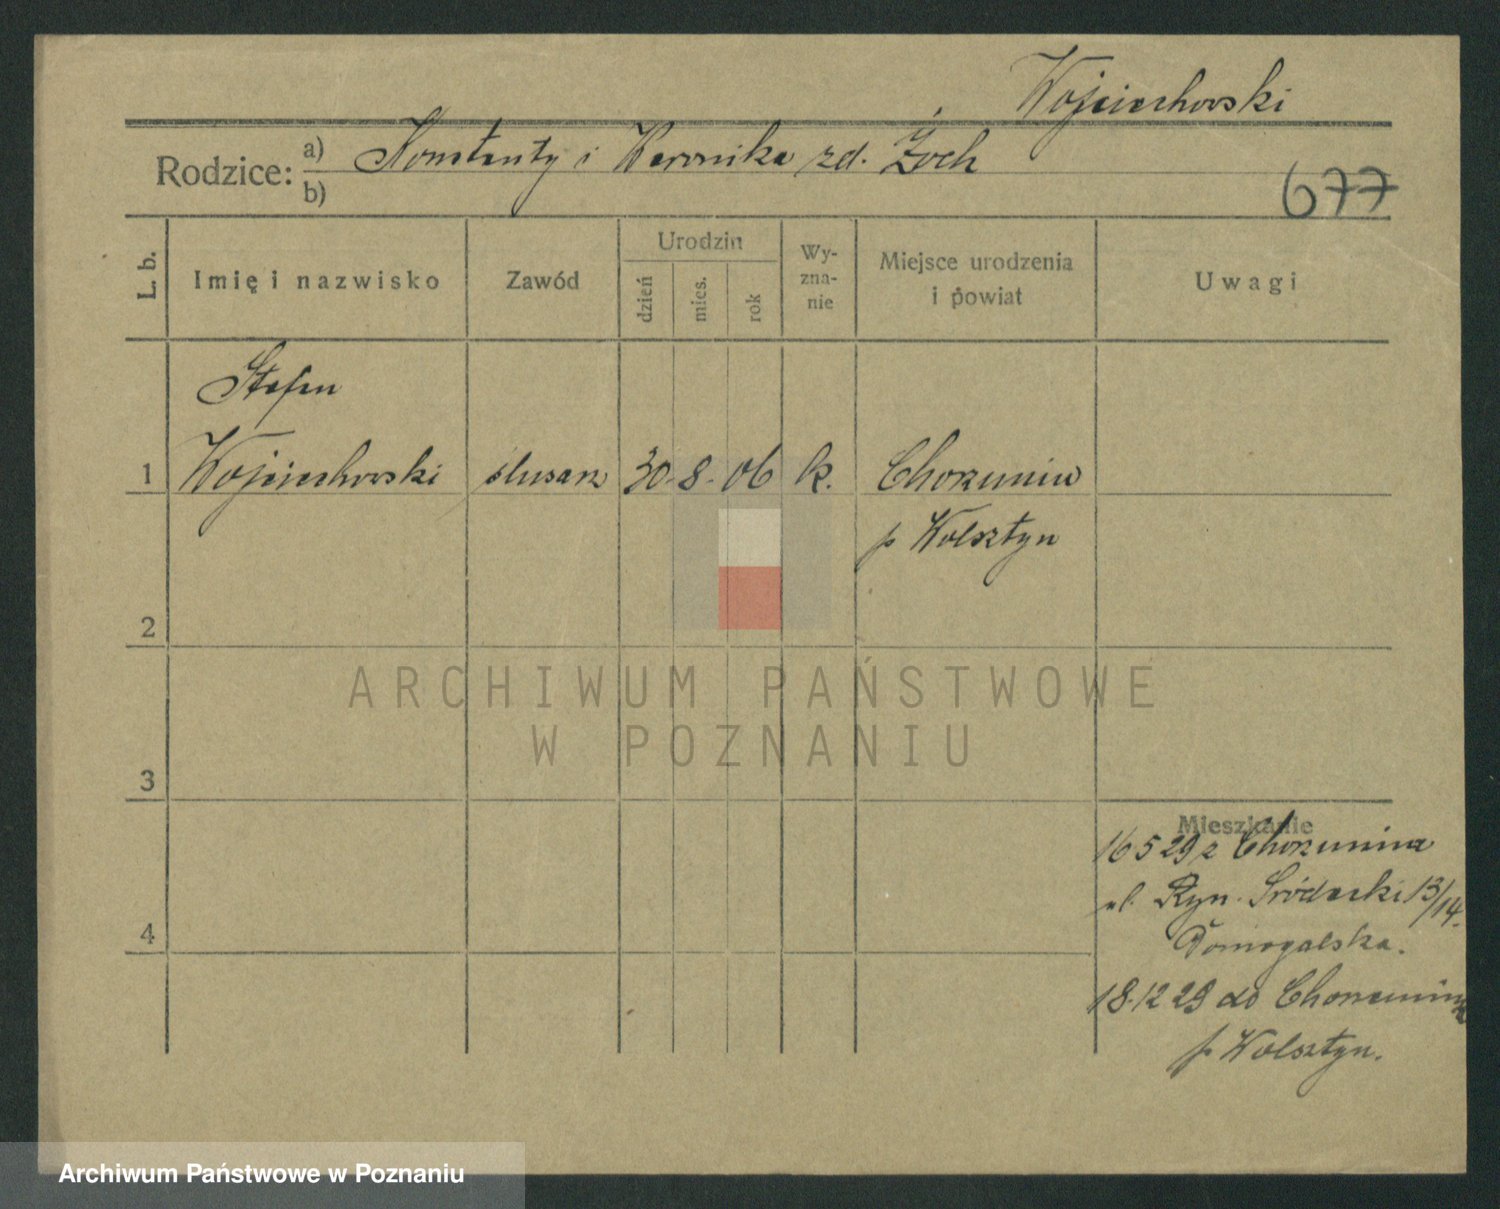 Wojciechowski
Rodzice: a) Konstanty i Weronika zd. Żoch
b)
677
L. b.
Imię i nazwisko
Zawód
Urodzin
dzień
mies.
rok
Wy-
zna-
nie
Miejsce urodzenia
i powiat
Uwagi
Stefan
1 Wojciechowski ślusarz 30. 8. 06 k. Chorzumin
p Wolsztyn
2
3
4
ARCHIWUM PAŃSTWOWE
W POZNANIU
Mieszkanie
16 5 29 z Chorzumina
ul. Ryn. Śródecki 13/14.
Domogalska.
18.12 29 do Chorzumina
p Wolsztyn.
Archiwum Państwowe w Poznaniu